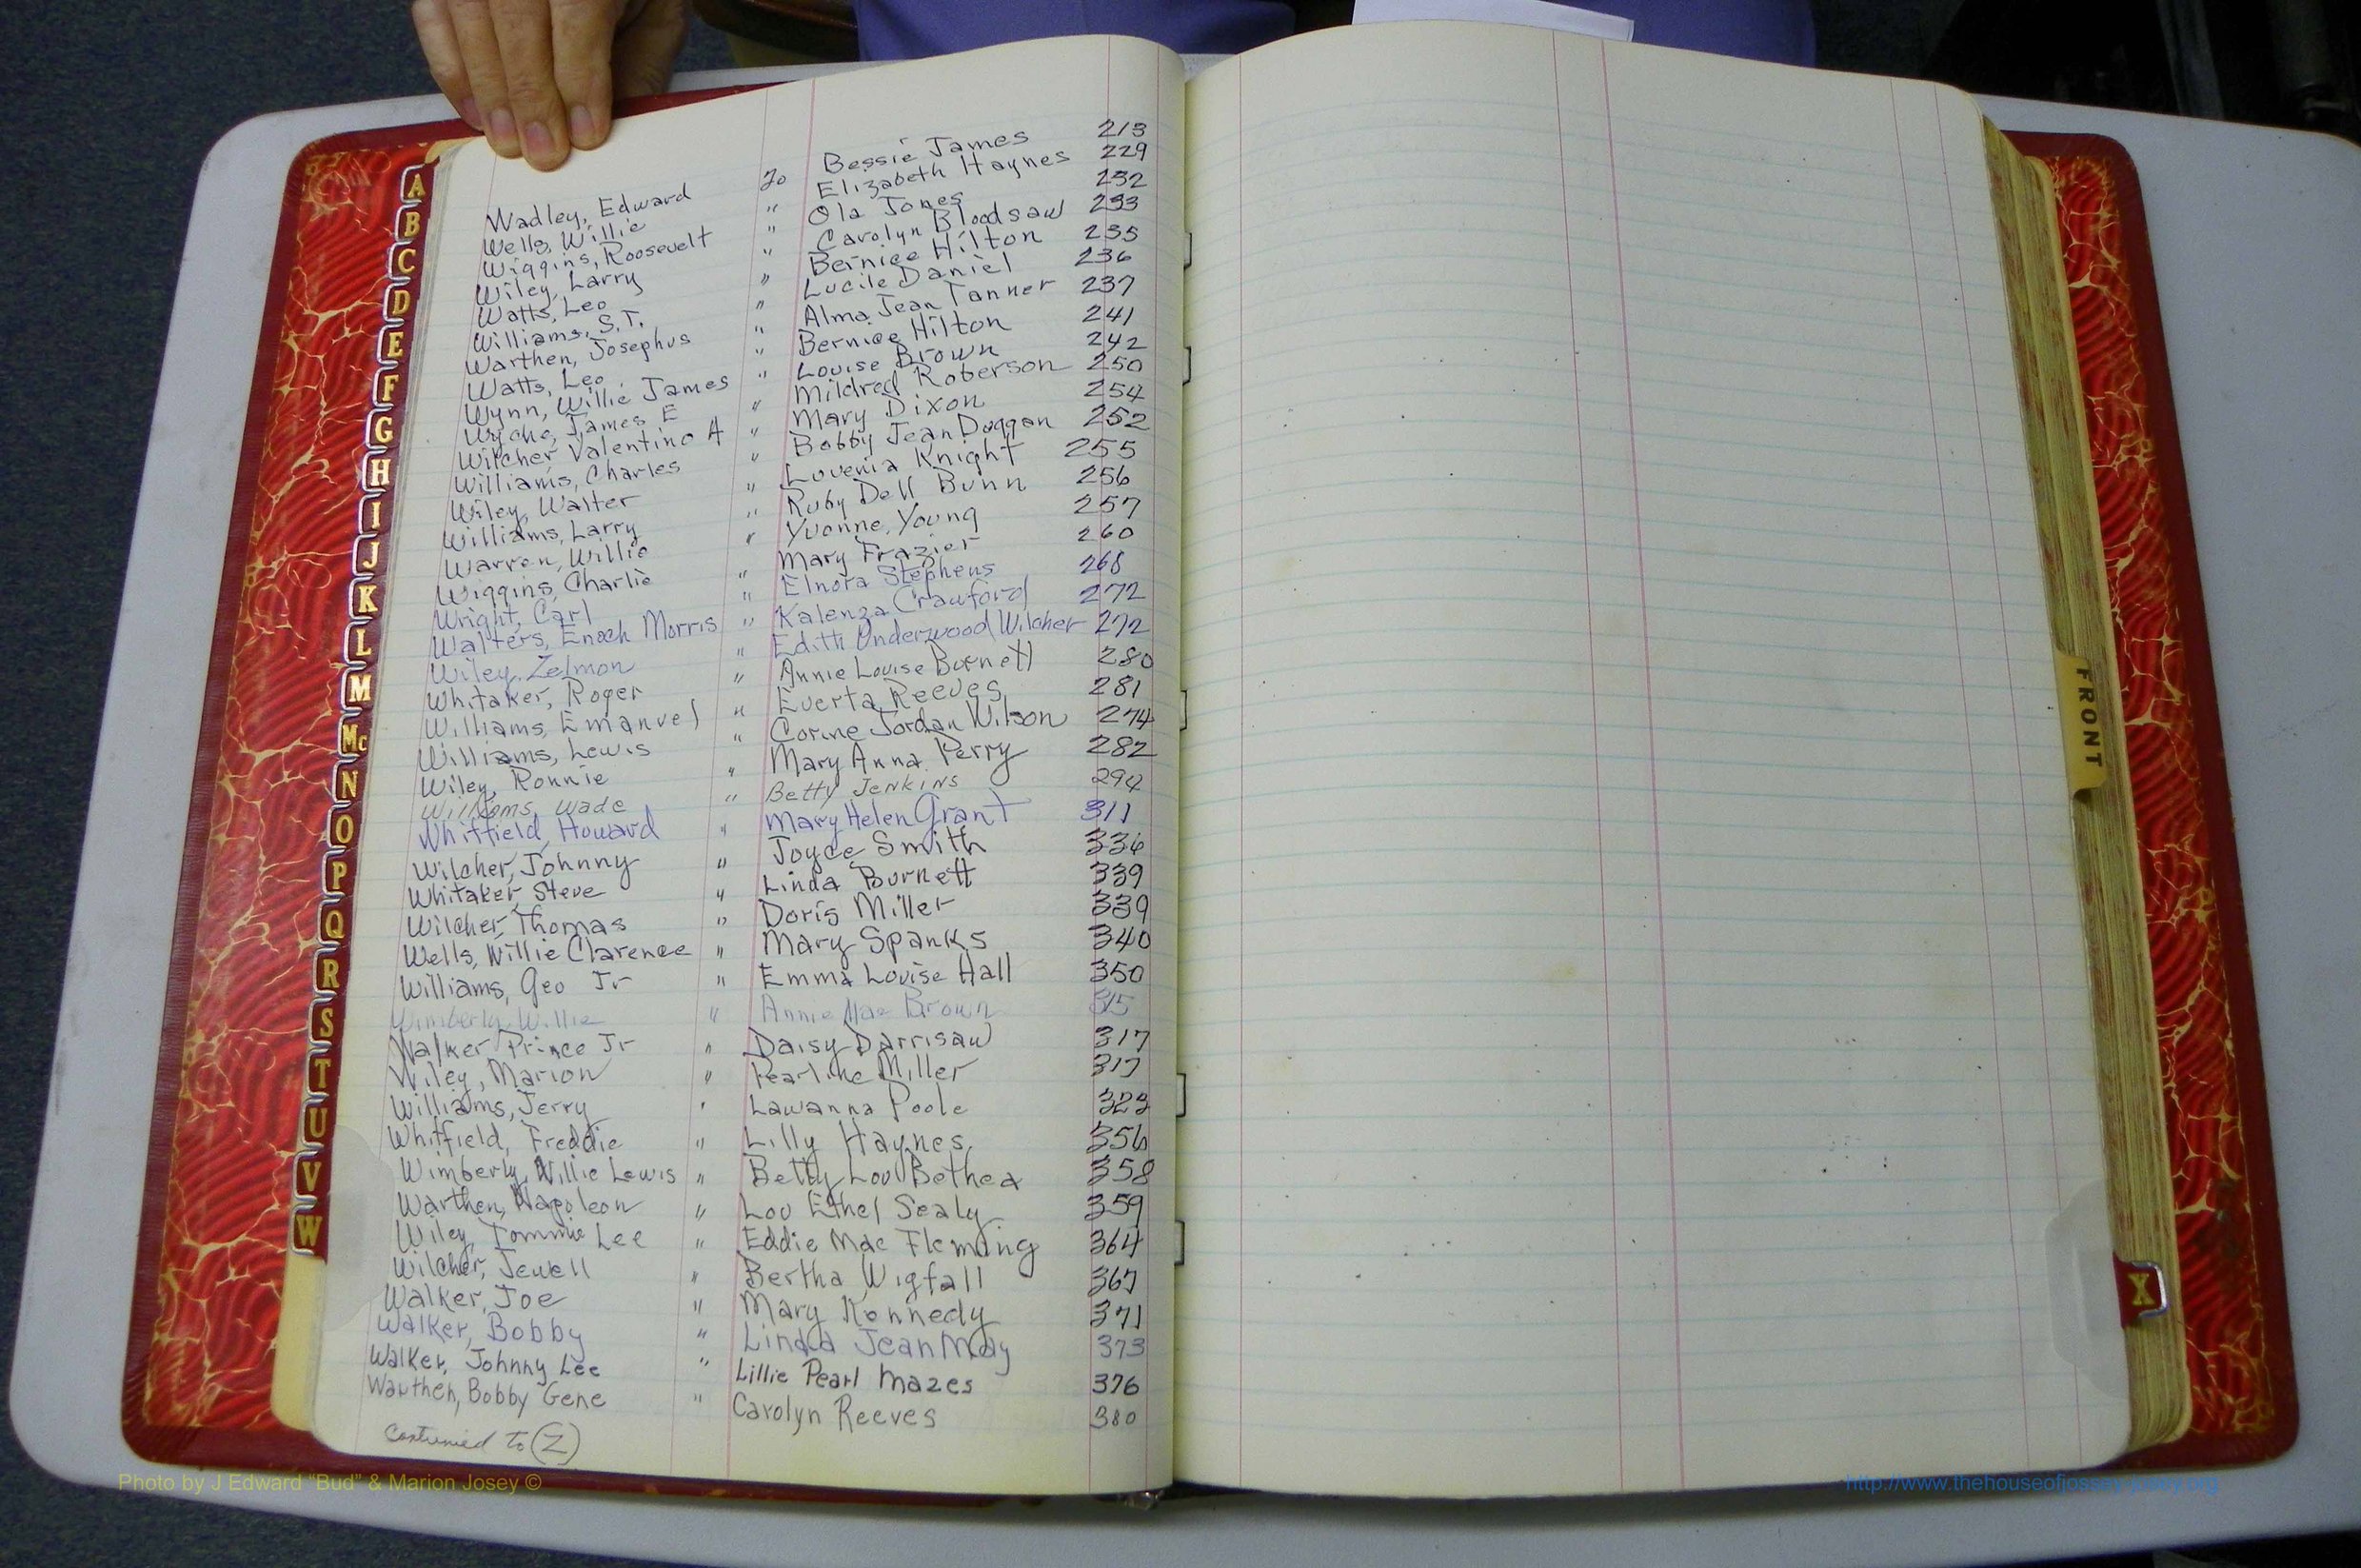 Wadley, Edward To Bessie James 213
Wells, Willie " Elizabeth Haynes 229
Wiggins, Roosevelt " Ola Jones 232
Wiley, Larry " Carolyn Bloodsaw 233
Watts, Leo " Bernice Hilton 235
Williams, S.T. " Lucile Daniel 236
Warthen, Josephus " Alma Jean Tanner 237
Watts, Leo " Bernice Hilton 241
Wynn, Willie James " Louise Brown 242
Wyche, James E " Mildred Roberson 250
Wilcher, Valentino A " Mary Dixon 254
Williams, Charles " Bobby Jean Duggan 252
Wiley, Walter " Lovenia Knight 255
Williams, Larry " Ruby Dell Bunn 256
Warren, Willie " Yvonne Young 257
Wiggins, Charlie " Mary Frazier 260
Wright, Carl " Elnora Stephens 268
Walters, Enoch Morris " Kalenza Crawford 272
Wiley, Zelmon " Edith Underwood Wilcher 272
Whitaker, Roger " Annie Louise Burnett 280
Williams, Emanuel " Everta Reeves 281
Williams, Lewis " Corine Jordan Wilson 274
Wiley, Ronnie " Mary Anna Perry 282
Williams, Wade " Betty Jenkins 294
Whitfield, Howard " Mary Helen Grant 311
Wilcher, Johnny " Joyce Smith 336
Whitaker, Steve " Linda Burnett 339
Wilcher, Thomas " Doris Miller 339
Wells, Willie Clarence " Mary Spanks 340
Williams, Geo Jr " Emma Louise Hall 350
Wimberly, Willie " Annie Mae Brown 315
Walker, Prince Jr " Daisy Darrisaw 317
Wiley, Marion " Pearline Miller 317
Williams, Jerry " Lawanna Poole 323
Whitfield, Freddie " Lilly Haynes 356
Wimberly, Willie Lewis " Betty Lou Bethea 358
Warthen, Napoleon " Lou Ethel Sealy 359
Wiley, Tommie Lee " Eddie Mae Fleming 364
Wilcher, Jewell " Bertha Wigfall 367
Walker, Joe " Mary Kennedy 371
Walker, Bobby " Linda Jean May 373
Walker, Johnny Lee " Lillie Pearl Mazes 376
Warthen, Bobby Gene " Carolyn Reeves 380
Continued to (Z)
A
B
C
D
E
F
G
H
I
J
K
L
M
Mc
N
O
P
Q
R
S
T
U
V
W
FRONT
X
Photo by J Edward "Bud" & Marion Josey ©